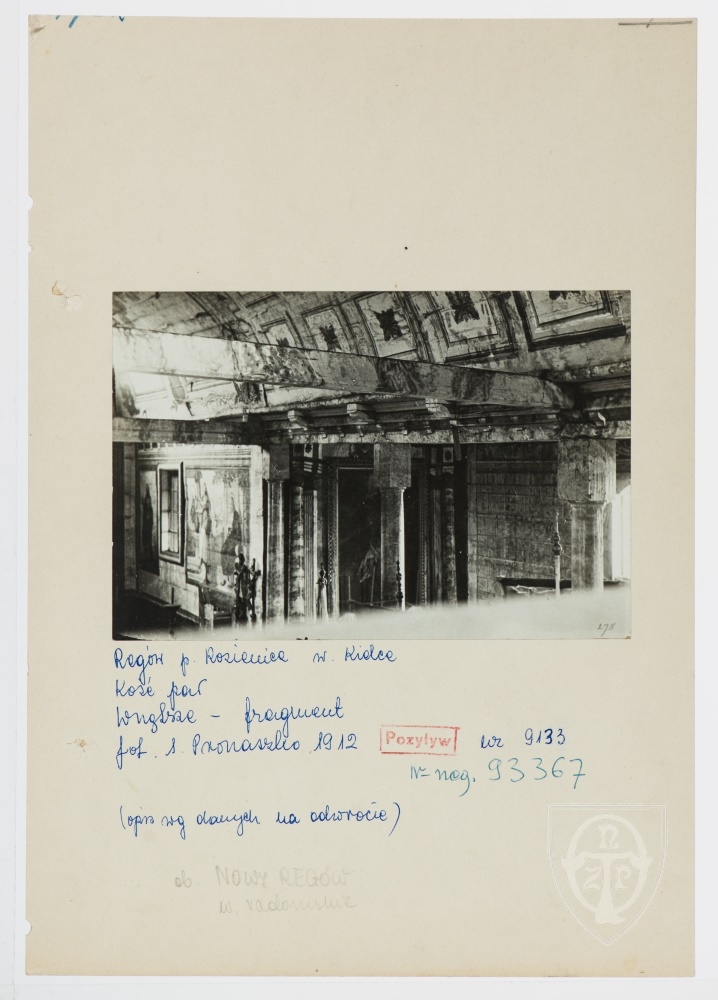 278
Regów p. Kozienice w. Kielce
Kość par
Wnętrze - fragment
fot. S. Pronaszko 1912 Pozytyw nr 9133
Nr neg. 93367
(opis wg danych na odwrocie)
ob. NOWY REGÓW
w. radomskie
TNZP